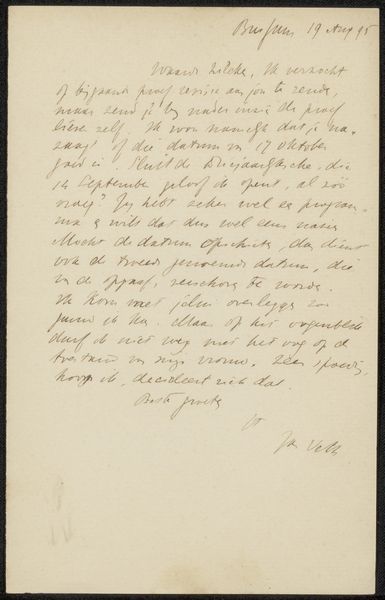 Bussum 19 Aug 95
Waarde Zilcke, Ik verzocht
of bijgaande proef aan jou te zende,
maar zend je bij nader inzie de proef
liever zelf. Ik wou namelijk dat je na-
zaagt of die datum van 17 Oktober
goed is. Sluit de Driejaarlijksche, die
14 September geloof ik opent, al zóó
vroeg? Jij hebt zeker wel een program-
ma & wilt dat dus wel eens nazien
Mocht de datum opschuiven, dan dient
ook de tweede genoemde datum, die
van de opgaaf, verschoven te worden.
Ik kom met jullie overleggen zoo
gauw ik kan. Maar op het oogenblik
durf ik niet weg met het oog op de
toestand van mijn vrouw. Zeer spoedig,
hoop ik, decideert zich dat.
Beste groete
Jan Veth